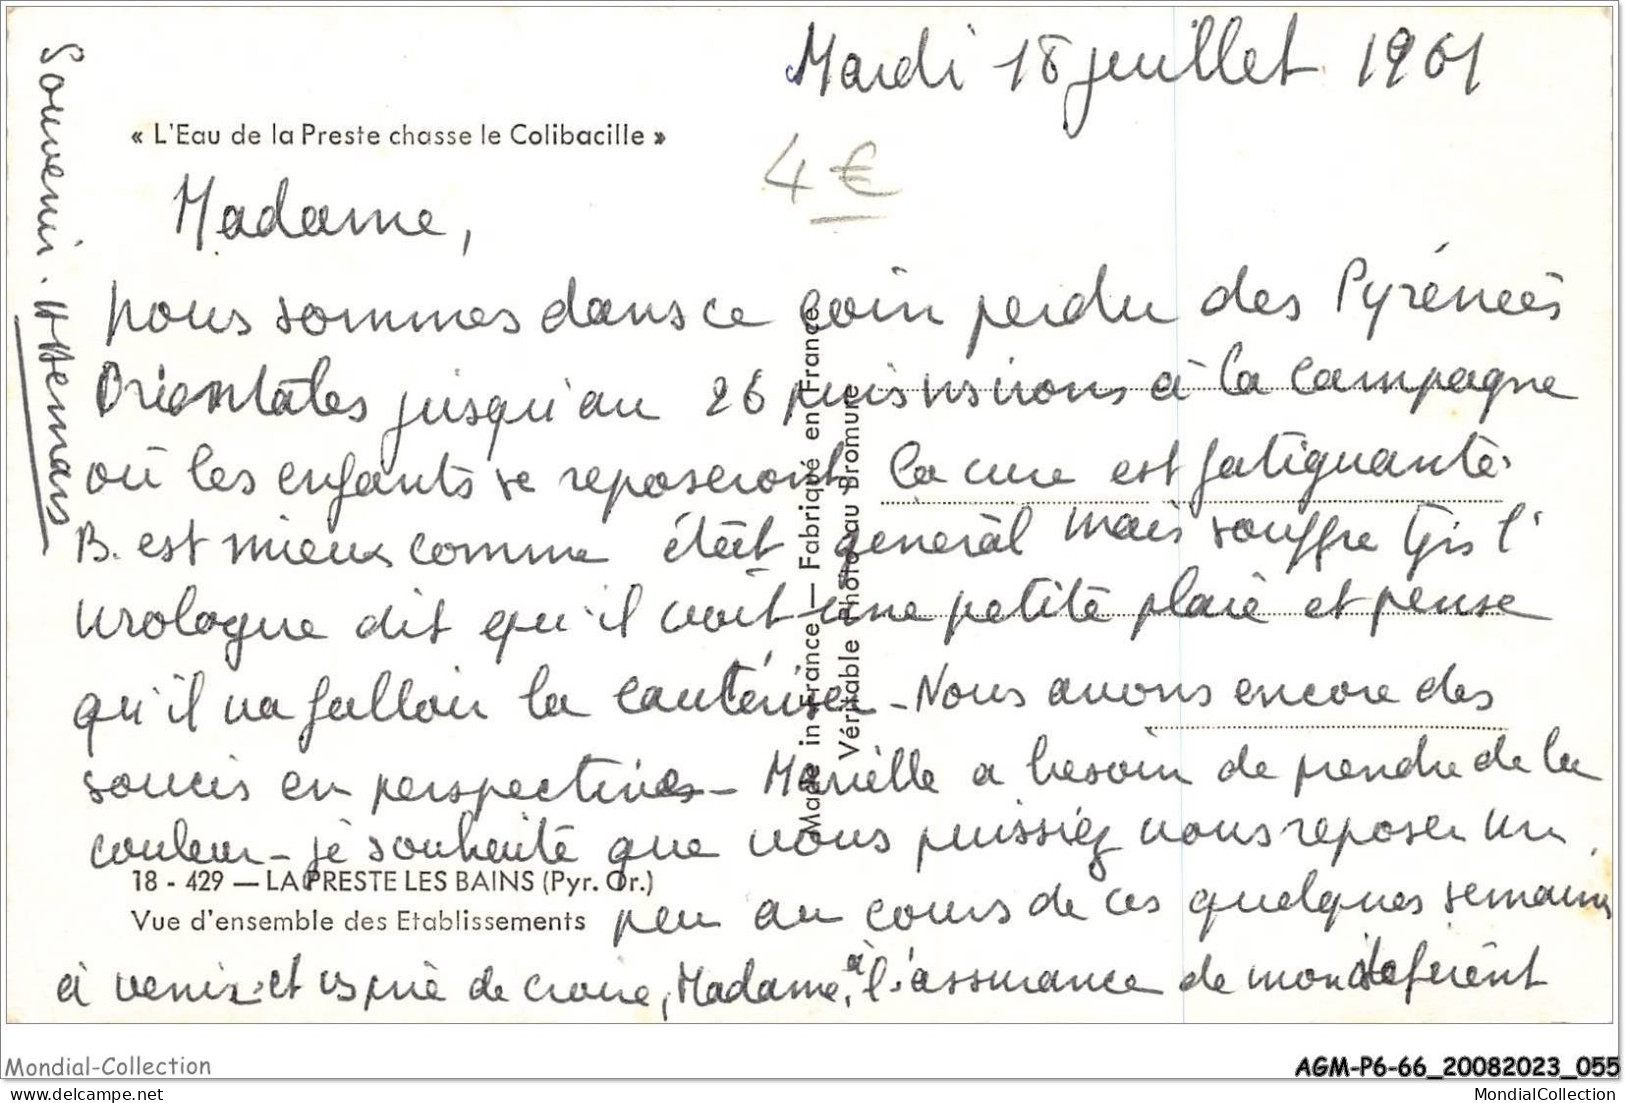 Mardi 18 juillet 1961
« L'Eau de la Preste chasse le Colibacille »
4 €
Madame,
nous sommes dans ce coin perdu des Pyrénées
Orientales jusqu'au 26 puis irons à la campagne
où les enfants se reposeront la cure est fatiguante.
B. est mieux comme état général mais souffre tjrs l'
urologue dit qu'il voit une petite plaie et pense
qu'il va falloir la cautériser - Nous avons encore des
soucis en perspectives - Marielle a besoin de prendre de la
couleur - je souhaite que vous puissiez vous reposer un
peu au cours de ces quelques semaines
à venir et vs prie de croire, Madame, à l'assurance de mon déférent
Souvenir. H Hermans
18 - 429 — LA PRESTE LES BAINS (Pyr. Or.)
Vue d'ensemble des Etablissements
Made in France — Fabriqué en France
Véritable Photo au Bromure
Mondial-Collection
AGM-P6-66_20082023_055
delcampe.net
MondialCollection